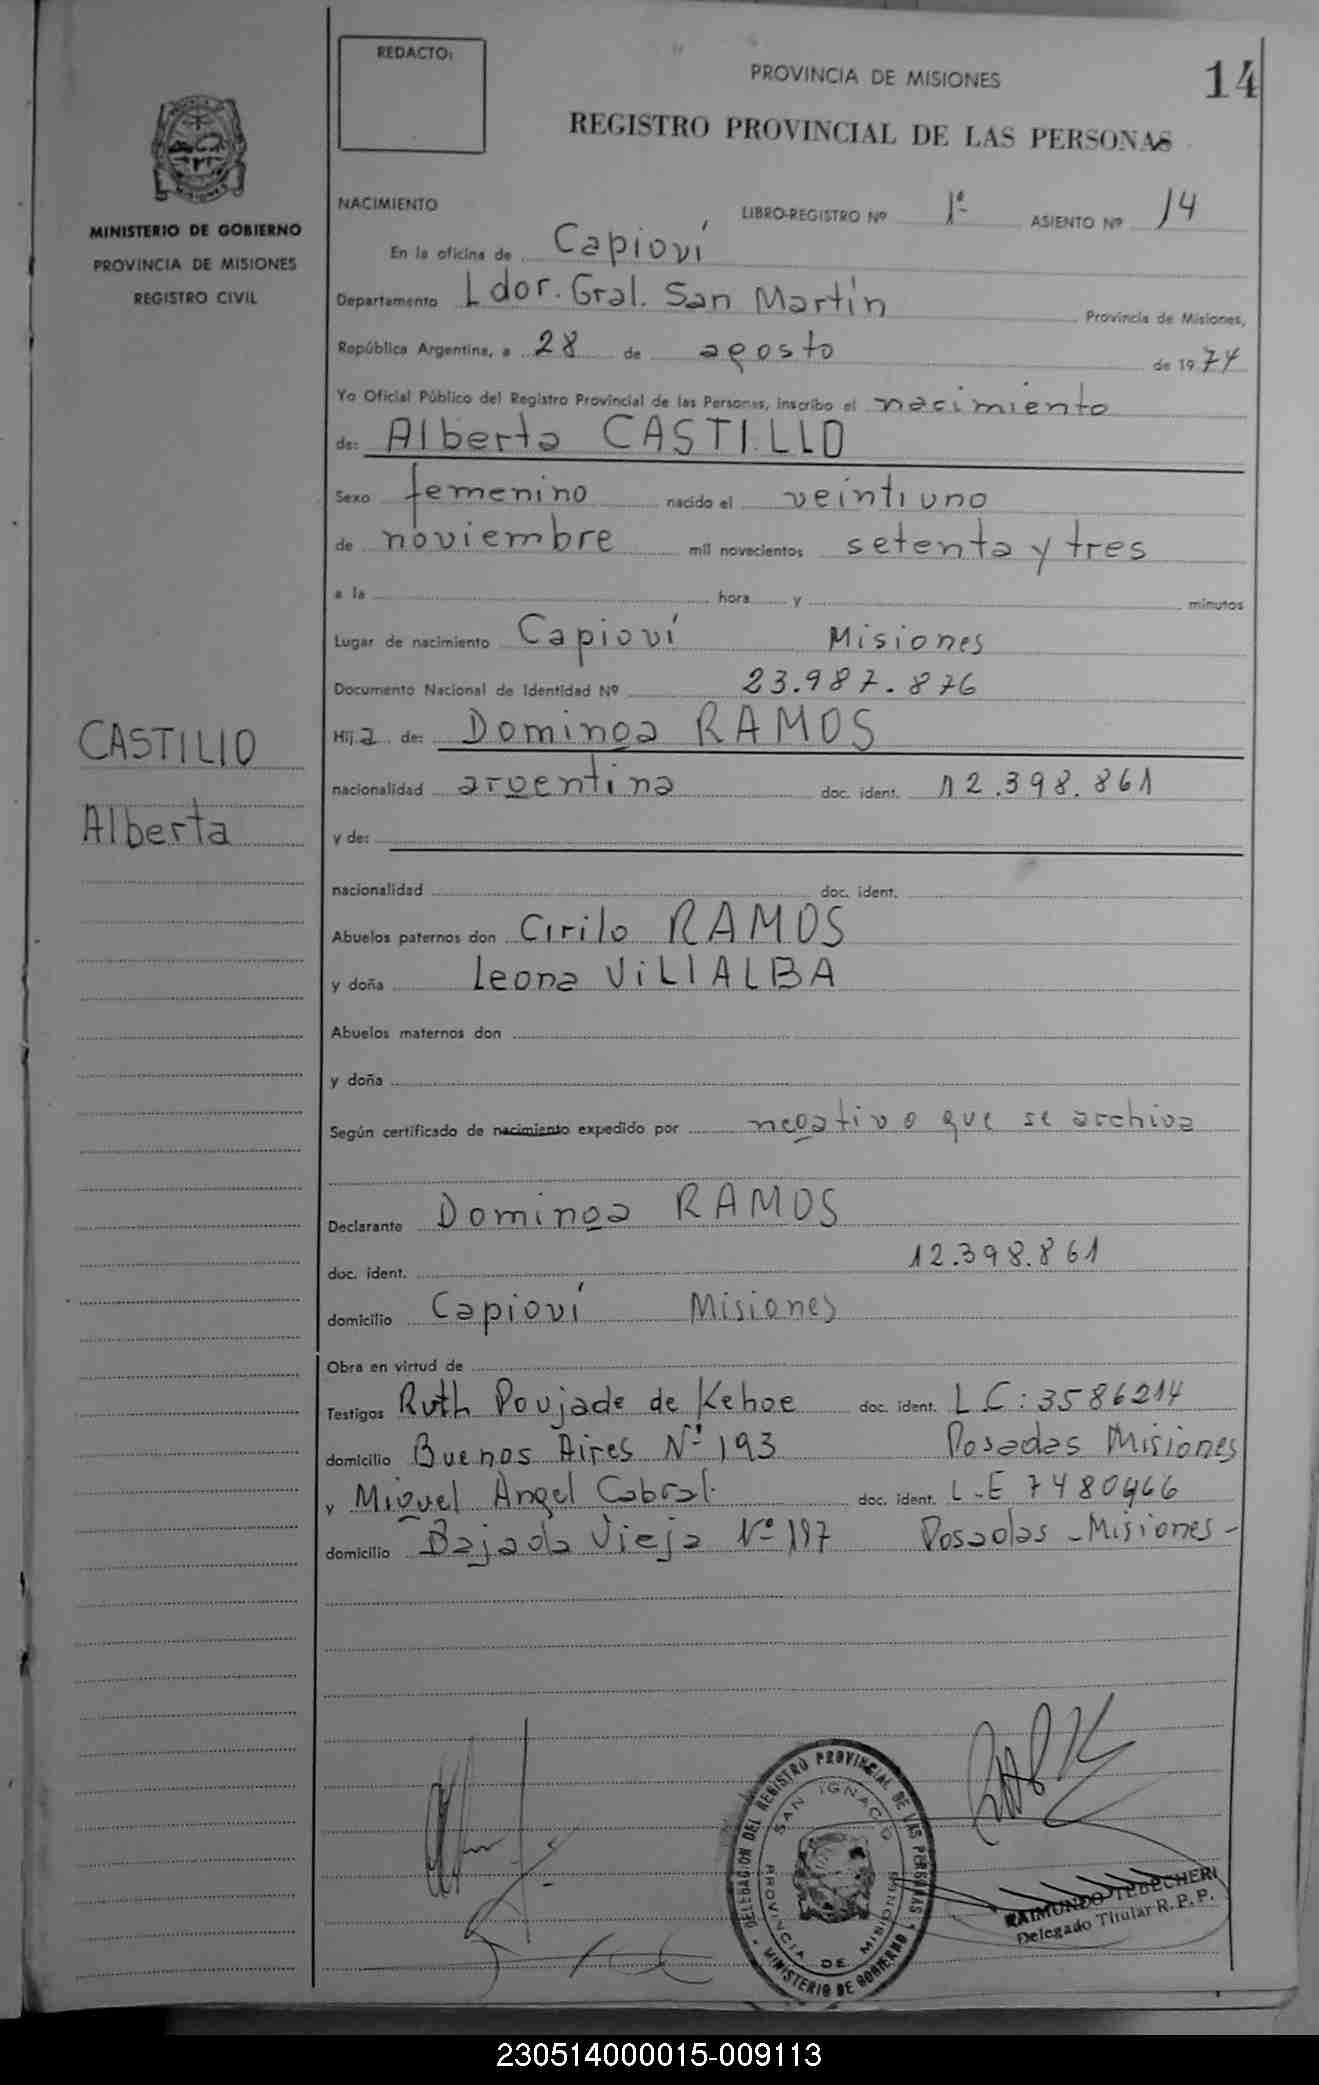 REDACTO:
PROVINCIA DE MISIONES
14
REGISTRO PROVINCIAL DE LAS PERSONAS
MINISTERIO DE GOBIERNO
PROVINCIA DE MISIONES
REGISTRO CIVIL
NACIMIENTO LIBRO-REGISTRO Nº 1º ASIENTO Nº 14
En la oficina de Capioví
Departamento Ldor. Gral. San Martín Provincia de Misiones,
República Argentina, a 28 de agosto de 1974
Yo Oficial Público del Registro Provincial de las Personas, inscribo el nacimiento
de: Alberta CASTILLO
Sexo femenino nacido el veintiuno
de noviembre mil novecientos setenta y tres
a la hora y minutos
Lugar de nacimiento Capioví Misiones
Documento Nacional de Identidad Nº 23.987.876
CASTILLO
Alberta
Hija de: Dominga RAMOS
nacionalidad argentina doc. ident. 12.398.861
y de:
nacionalidad doc. ident.
Abuelos paternos don Cirilo RAMOS
y doña Leona ViLLALBA
Abuelos maternos don
y doña
Según certificado de nacimiento expedido por negativo que se archiva
Declarante Dominga RAMOS
doc. ident. 12.398.861
domicilio Capioví Misiones
Obra en virtud de
Testigos Ruth Poujade de Kehoe doc. ident. L.C: 3586214
domicilio Buenos Aires Nº 193 Posadas Misiones
y Miguel Angel Cabral. doc. ident. L-E 7480466
domicilio Bajada Vieja Nº 197 Posadas - Misiones -
DELEGACION DEL REGISTRO PROVINCIAL DE LAS PERSONAS
SAN IGNACIO
PROVINCIA DE MISIONES
MINISTERIO DE GOBIERNO
RAIMUNDO TEBECHERI
Delegado Titular R. P. P.
230514000015-009113